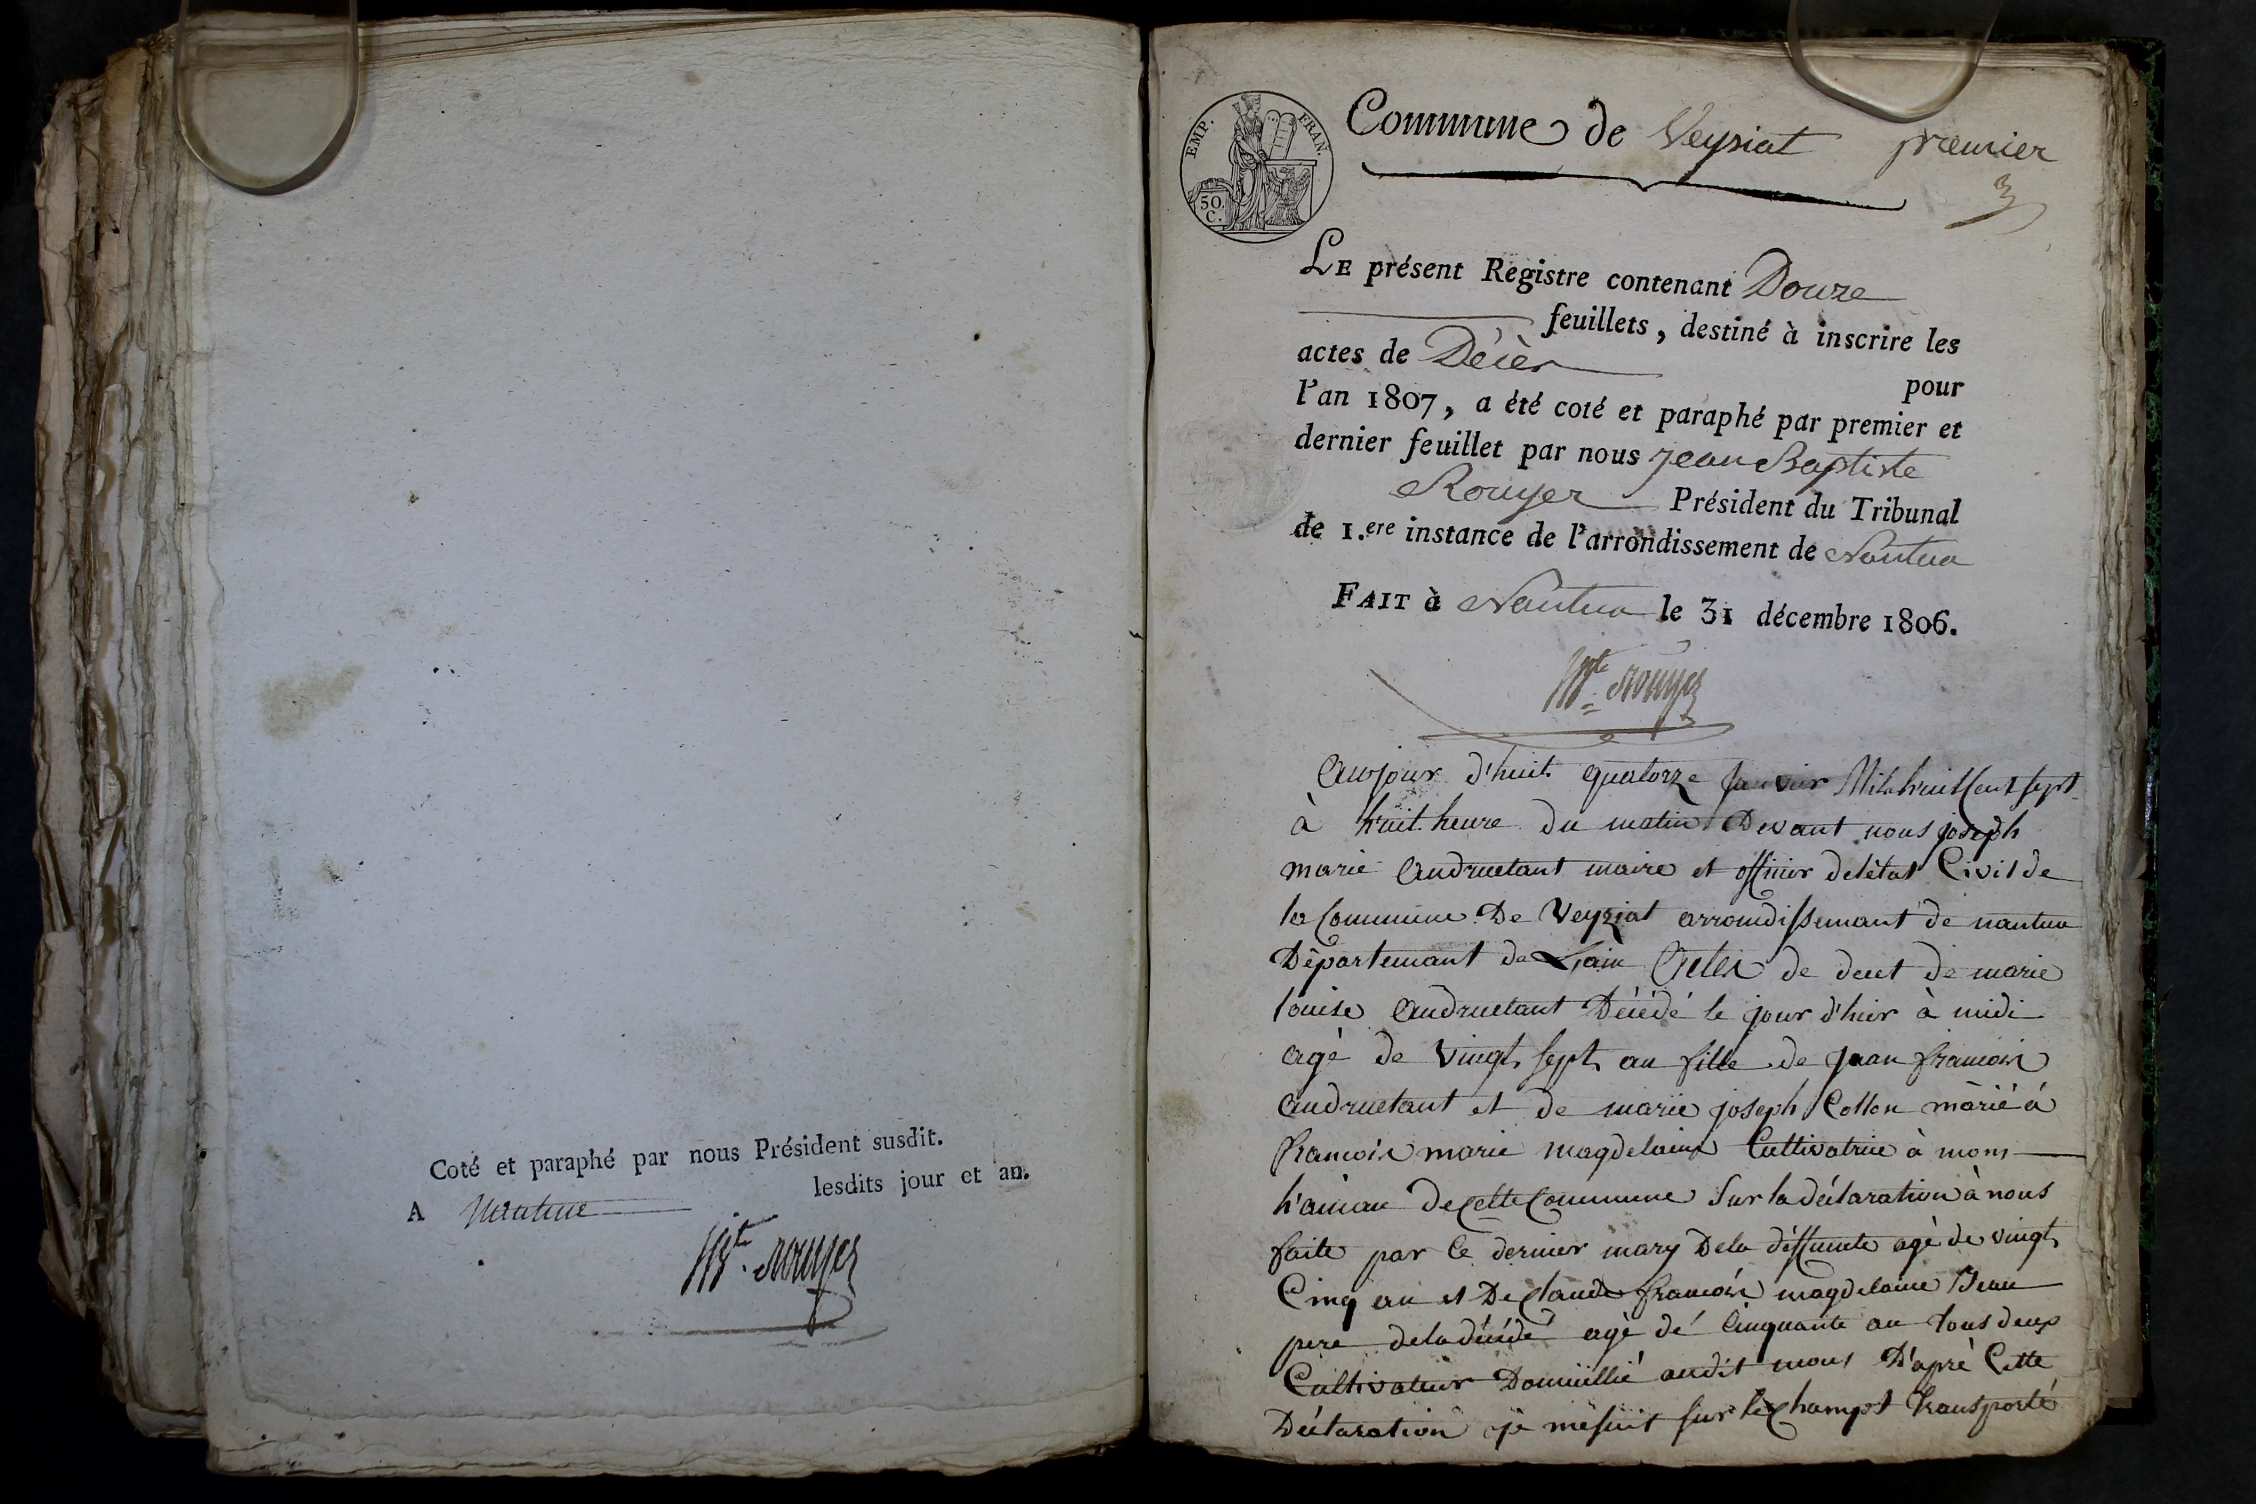 Coté et paraphé par nous Président susdit.
A Nantua lesdits jour et an.
JBte. Rouyer
EMP. FRAN.
50.
C.
Commune de Veysiat premier
LE présent Registre contenant Douze
feuillets, destiné à inscrire les
actes de Décès pour
l'an 1807, a été coté et paraphé par premier et
dernier feuillet par nous Jean Baptiste
Rouyer Président du Tribunal
de 1.ere instance de l'arrondissement de Nantua
FAIT à Nantua le 31 décembre 1806.
JBte. Rouyer
Aujour d'huit quatorze janvier Mil huit Cent sept
à huit heure du matin Devant nous joseph
marie Andruetant maire et officier de létat Civil de
la Commune De Veyziat arrondissemant de nantua
Départemant de Lain Actes de decet de marie
louise Andruetant Décédé le jour d'hier à midi
agé de vingt sept an fille de jean francois
Andruetant et de marie joseph Collon màrié à
francois marie magdelaine Cultivatrice à mons
h'amau de Cette Commune Sur la déclaration à nous
faite par Ce dernier mary De la déffunte agé de vingt
Cinq an et De Claude francois magdelaine Beau
pere de la décédé agé dé Cinquante an tous deux
Cultivateur Domicillié audit mons D'aprè Cette
Déclaration je mesuit sur le Champt transporté